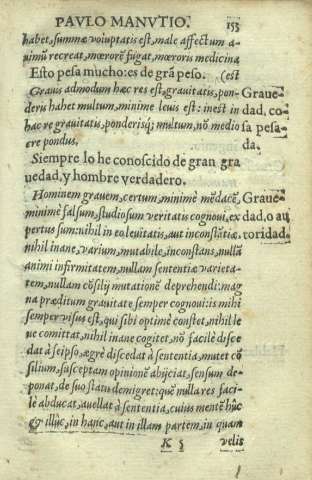 PAVLO MANVTIO. 153
habet, summæ voluptatis est, male affectum a-
nimũ recreat, mœrorẽ fugat, mœroris medicina
Esto pesa mucho: es de grã peso. (est
Grauis admodum hæc res est, grauitatis, pon-
deris habet multum, minime leuis est: inest in
hac re grauitatis, ponderisq; multum, nõ medio
ere pondus.
Graue-
dad, co-
sa pesa-
da.
Siempre lo he conoscido de gran gra
uedad, y hombre verdadero.
Hominem grauem, certum, minimè mẽdacẽ,
minimè falsum, studiosum veritatis cognoui, ex
pertus sum: nihil in eo leuitatis, aut inconstãtiæ
nihil inane, varium, mutabile, incõstans, nullã
animi infirmitatem, nullam sententiæ varieta-
tem, nullam cõsilij mutationẽ deprehendi: mag
na præditum grauitate semper cognoui: is mihi
semper visus est, qui sibi optimè constet, nihil le
ue comittat, nihil inane cogitet, nõ facilè disce
dat à seipso, ægrè discedat à sententia, mutet cõ
silium, susceptam opinionẽ abijciat, sensum de-
ponat, de suo statu demigret: quẽ nulla res faci-
lè abducat, auellat à sententia, cuius mentẽ hûc
& illûc, in hanc, aut in illam partem, in quam
Graue-
dad, o au
toridad.
K 5 velis